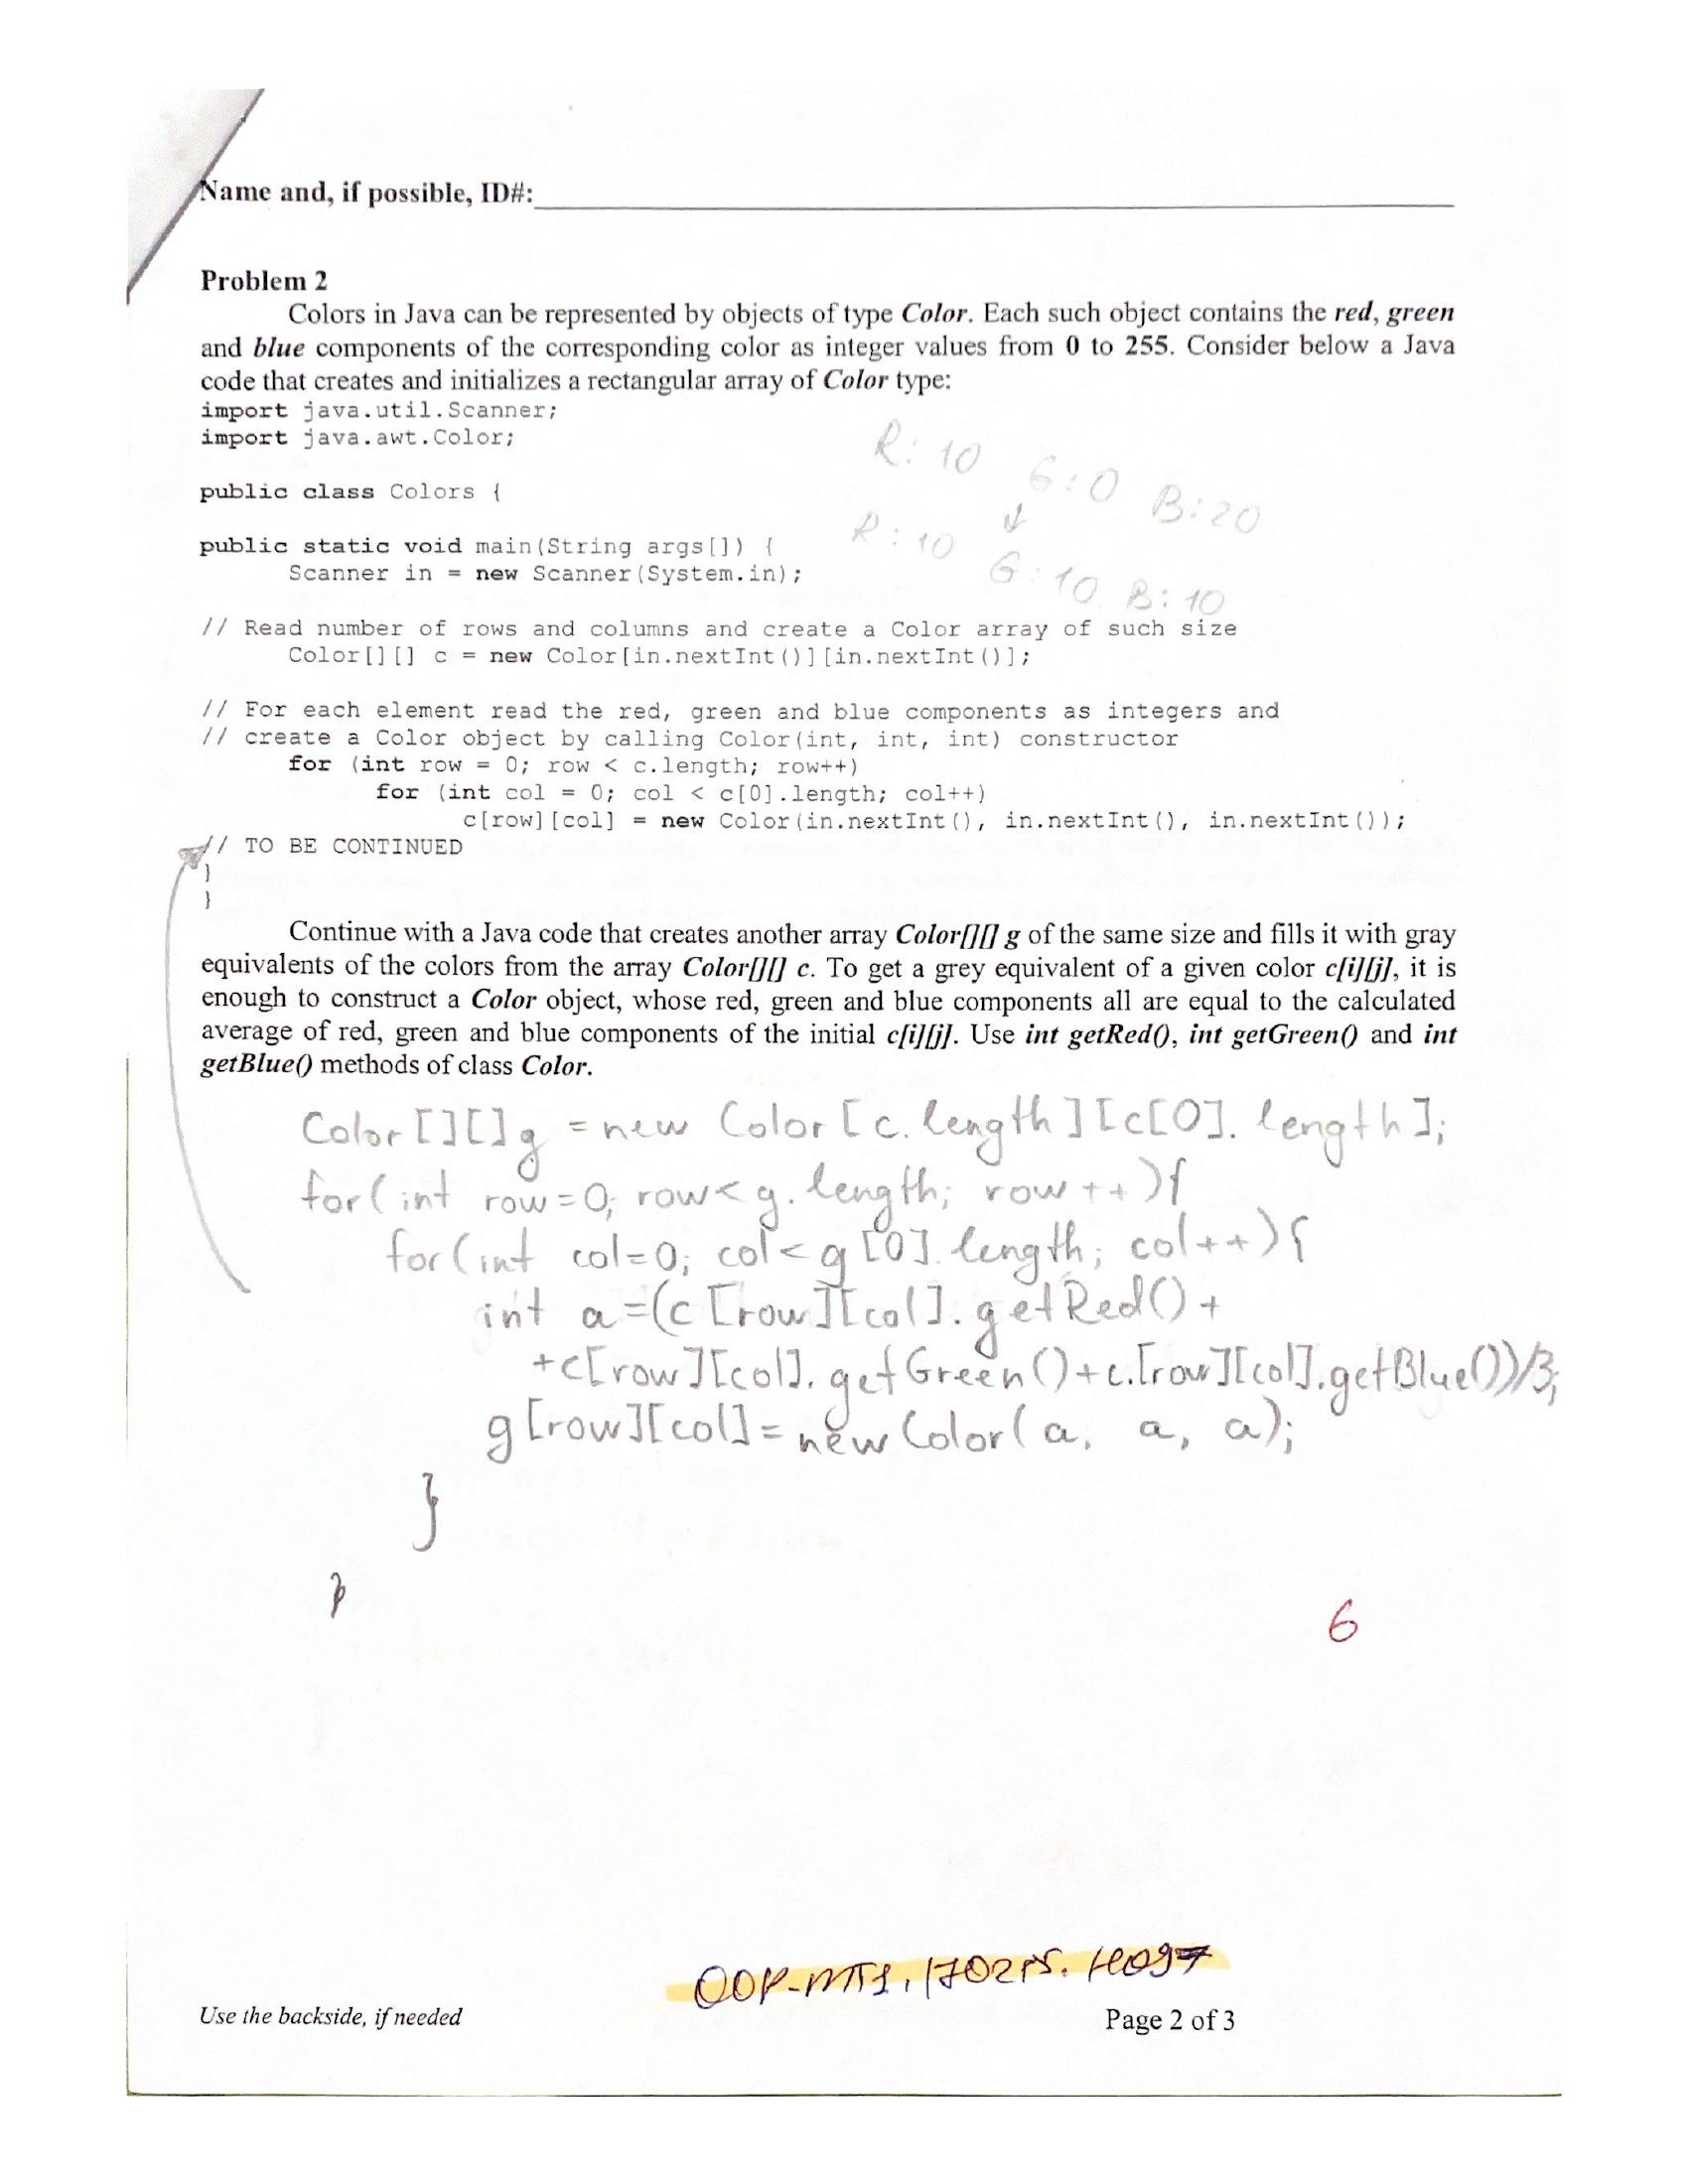 Name and, if possible, ID#:
Problem 2
Colors in Java can be represented by objects of type Color. Each such object contains the red, green
and blue components of the corresponding color as integer values from 0 to 255. Consider below a Java
code that creates and initializes a rectangular array of Color type:
import java.util.Scanner;
import java.awt.Color;
R: 10 G: 0 B: 20
public class Colors {
R: 10 G: 10 B: 10
public static void main(String args[]) {
Scanner in = new Scanner(System.in);
// Read number of rows and columns and create a Color array of such size
Color[][] c = new Color[in.nextInt()][in.nextInt()];
// For each element read the red, green and blue components as integers and
// create a Color object by calling Color(int, int, int) constructor
for (int row = 0; row < c.length; row++)
for (int col = 0; col < c[0].length; col++)
c[row][col] = new Color(in.nextInt(), in.nextInt(), in.nextInt());
// TO BE CONTINUED
}
}
Continue with a Java code that creates another array Color[][] g of the same size and fills it with gray
equivalents of the colors from the array Color[][] c. To get a grey equivalent of a given color c[i][j], it is
enough to construct a Color object, whose red, green and blue components all are equal to the calculated
average of red, green and blue components of the initial c[i][j]. Use int getRed(), int getGreen() and int
getBlue() methods of class Color.
Color [][] g = new Color [c.length][c[0].length];
for(int row=0; row<g.length; row++){
for(int col=0; col<g[0].length; col++){
int a=(c[row][col].getRed()+
+c[row][col].getGreen()+c.[row][col].getBlue())/3;
g[row][col]= new Color(a, a, a);
}
}
6
Use the backside, if needed
Page 2 of 3